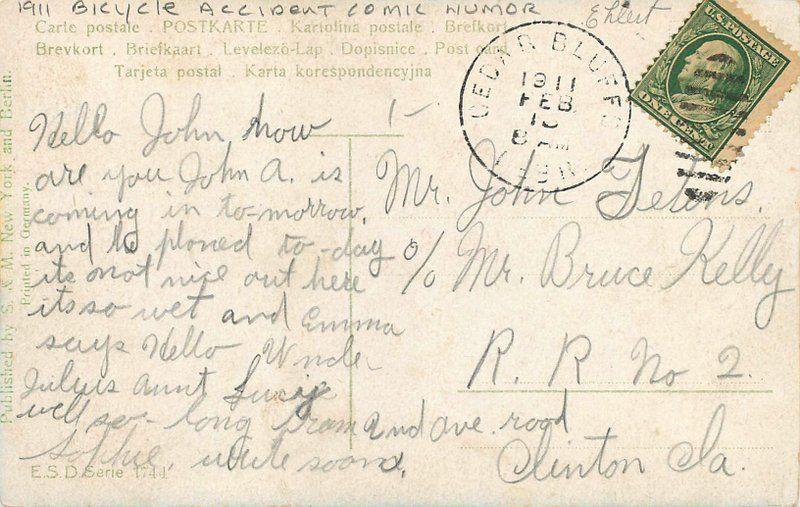 1911 BICYCLE ACCIDENT COMIC HUMOR
Ehlert
Carte postale . POSTKARTE . Kartolina postale . Brefkort
Brevkort . Briefkaart . Levelezö-Lap . Dopisnice . Post card
Tarjeta postal . Karta korespondencyjna
U.S. POSTAGE
ONE CENT
CEDAR BLUFFS
1911
FEB.
8 AM
NEBR.
1-
Hello John how
are you John A. is
coming in to-morrow.
and he phoned to-day
its not nice out here
its so wet and Emma
says Hello Uncle
Julius aunt
well so-long from
Sophie, write soon.
Mr. John Tetens.
c/o Mr. Bruce Kelly
R. R No 2.
2nd ave. road
Clinton Ia.
Published by S. & M. New York and Berlin.
Printed in Germany.
E.S.D. Serie 1744